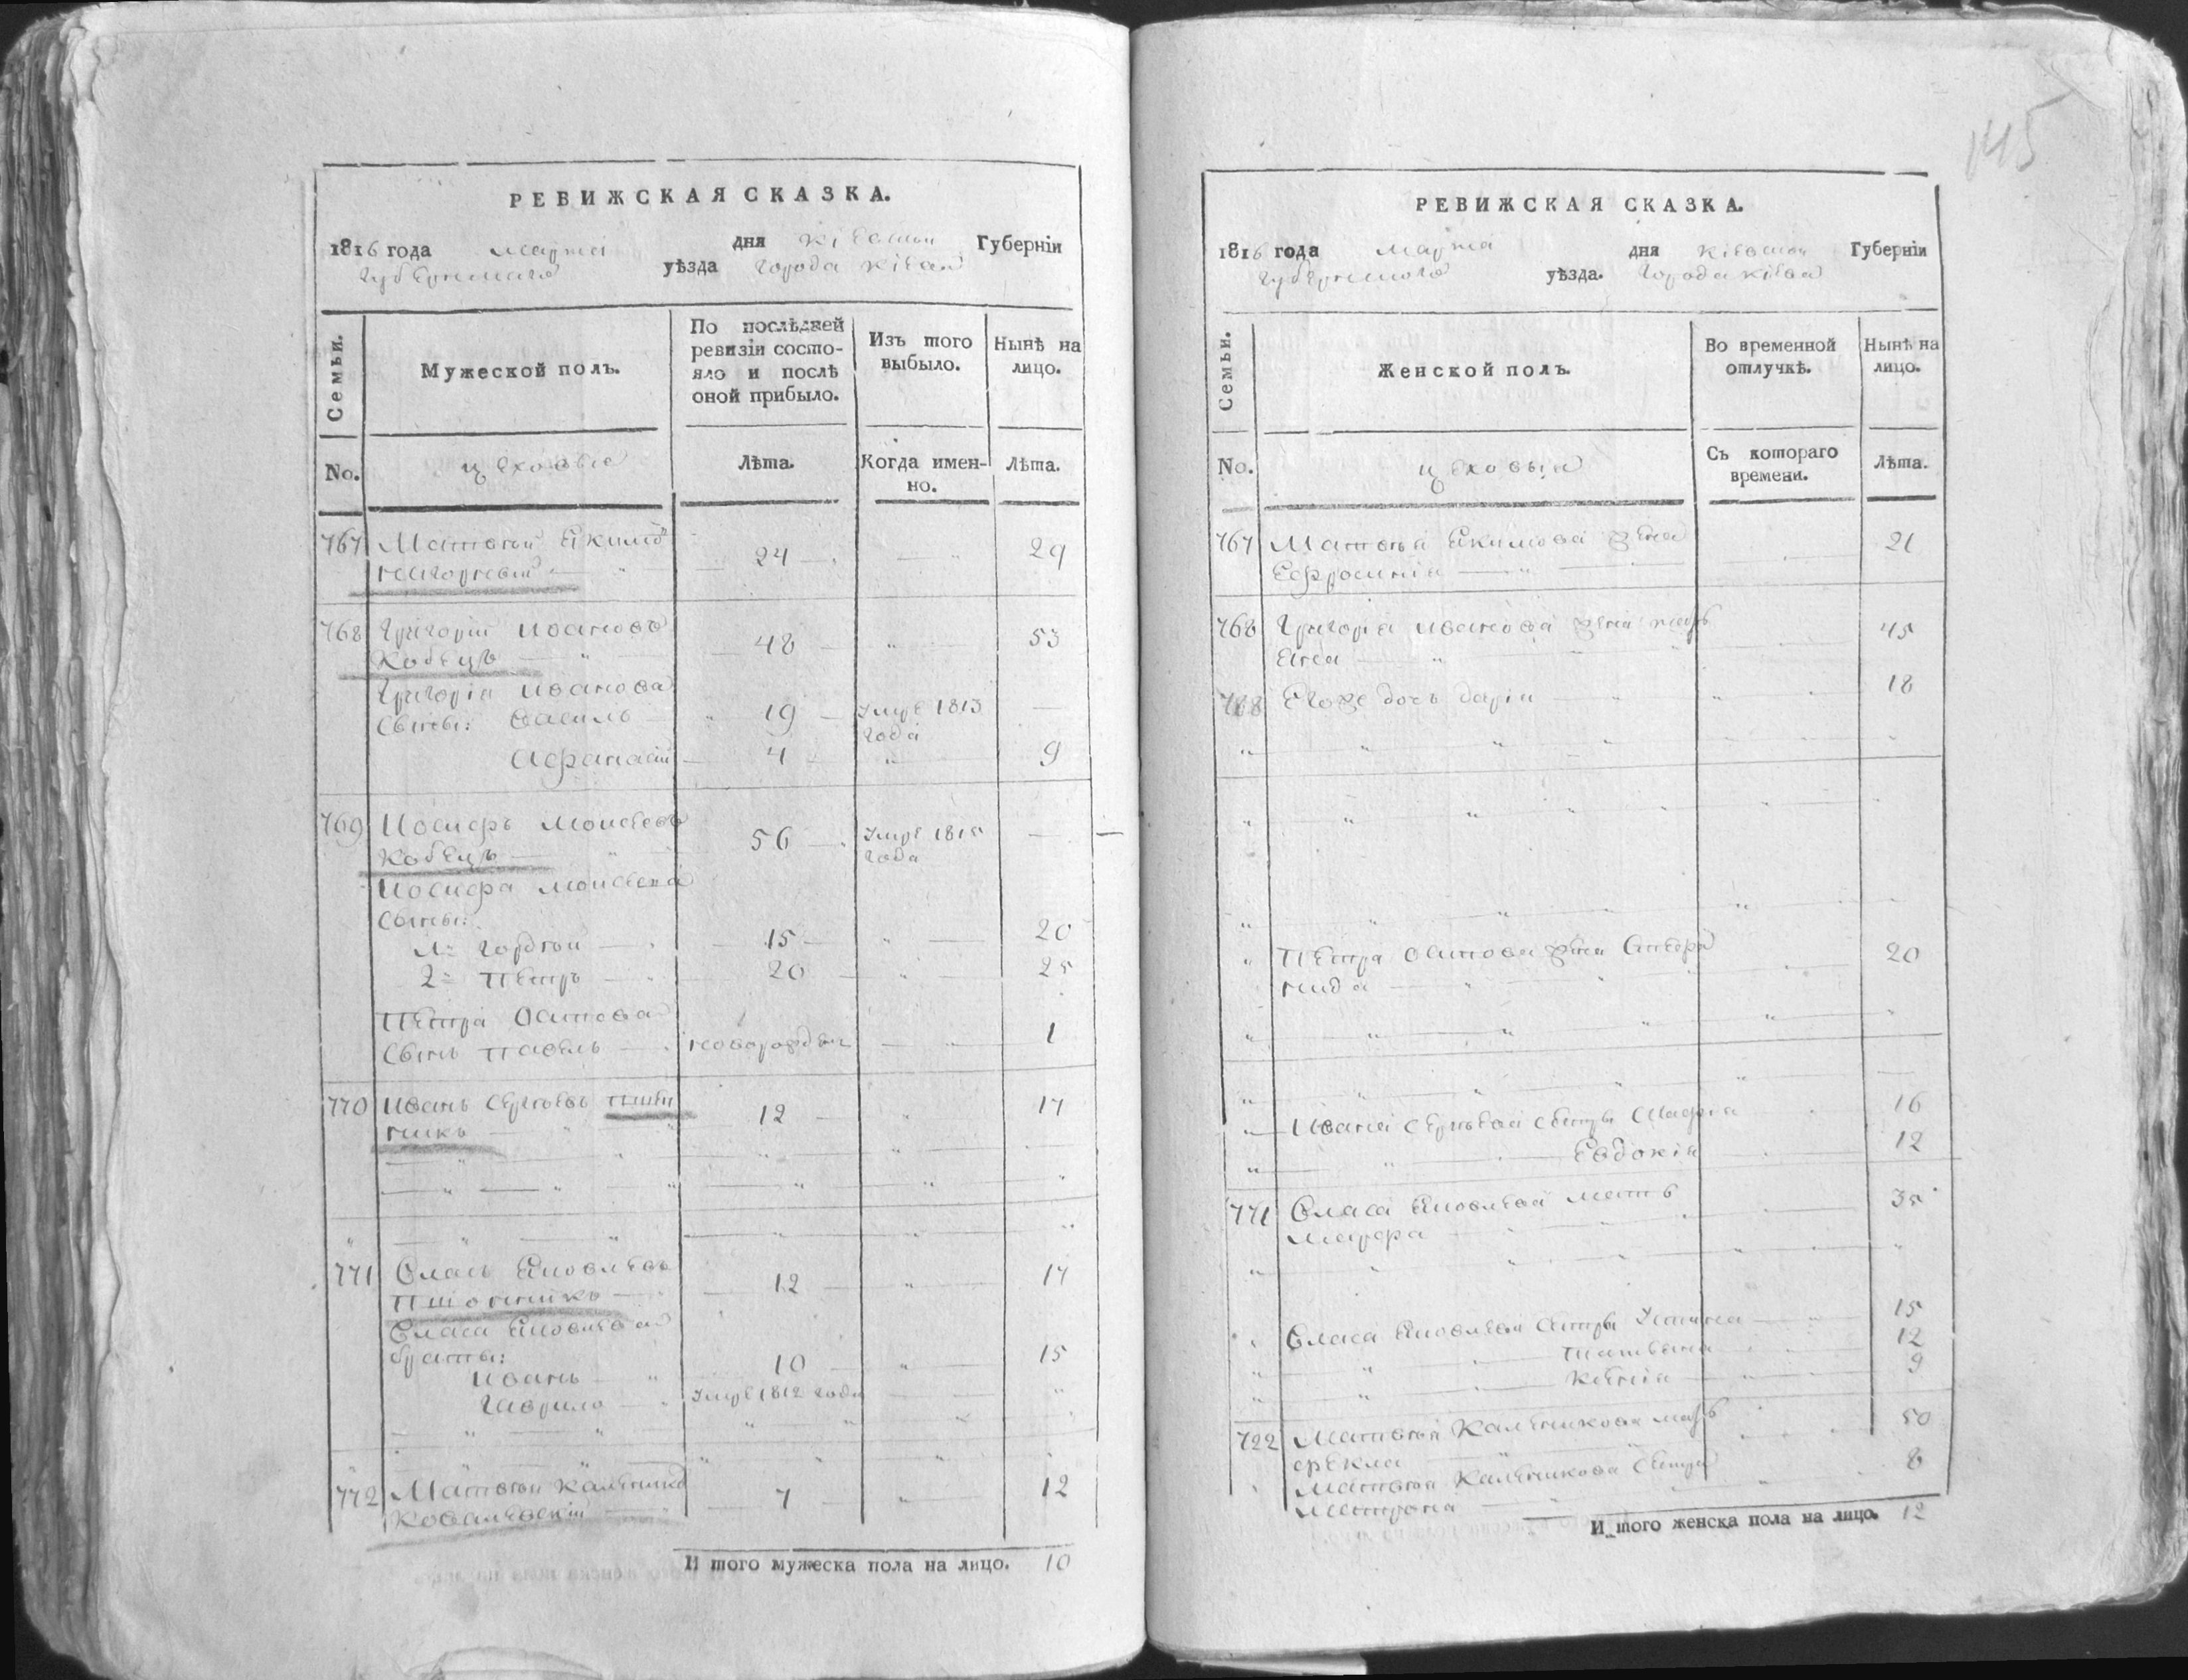 145
РЕВИЖСКАЯ СКАЗКА.
1816 года Марта дня Кіевской Губерніи
Губернскаго уѣзда города Кіева
Семьи.
Мужеской полъ.
По послѣдней ревизіи состо-
яло и послѣ
оной прибыло.
Изъ того
выбыло.
Нынѣ на
лицо.
No.
цеховые
Лѣта.
Когда имен-
но.
Лѣта.
767 Матвѣй Якимовъ
24 29
768 Григорій Ивановъ
Кобецъ 48 53
Григорія Иванова
сыны: Василь 19 Умре 1813
года
Афанасій 4 9
769 Иосифъ Моисеевъ
Кобецъ 56 Умре 1815
года
Иосифа Моисеева
сыны:
1= Гордѣй 15 20
2= Петръ 20 25
Петра Осипова
сынъ Павелъ новорожден 1
770 Иванъ Сергѣевъ Пшен
никъ 12 17
771 Власъ Яковлевъ
Пшонникъ 12 17
Власа Яковлева
браты:
Иванъ 10 15
Гаврило Умре 1812 года
772 Матвѣй Калениковъ
Ковалевскій 7 12
И того мужеска пола на лицо. 10
РЕВИЖСКАЯ СКАЗКА.
1816 года Марта дня Кіевской Губерніи
Губернскаго уѣзда. Города Кіева
Семьи.
Женской полъ.
Во временной
отлучкѣ.
Нынѣ на
лицо.
No.
цеховыя
Съ котораго
времени.
Лѣта.
767 Матвѣя Якимова жена
Ефросинія 21
768 Григорія Иванова жена
45
768 Егоже дочь Дарія 18
Петра Осипова жена Степа
нида 20
Ивана Сергѣева сестры Марфа 16
Евдокія 12
771 Власа Яковлева мать
35
Власа Яковлева сестры Устина 15
Татьяна 12
Ксенія 9
722 Матвѣя Каленикова мать
Фекла 50
Матвѣя Каленикова сестра
Матрона 8
И того женска пола на лицо. 12